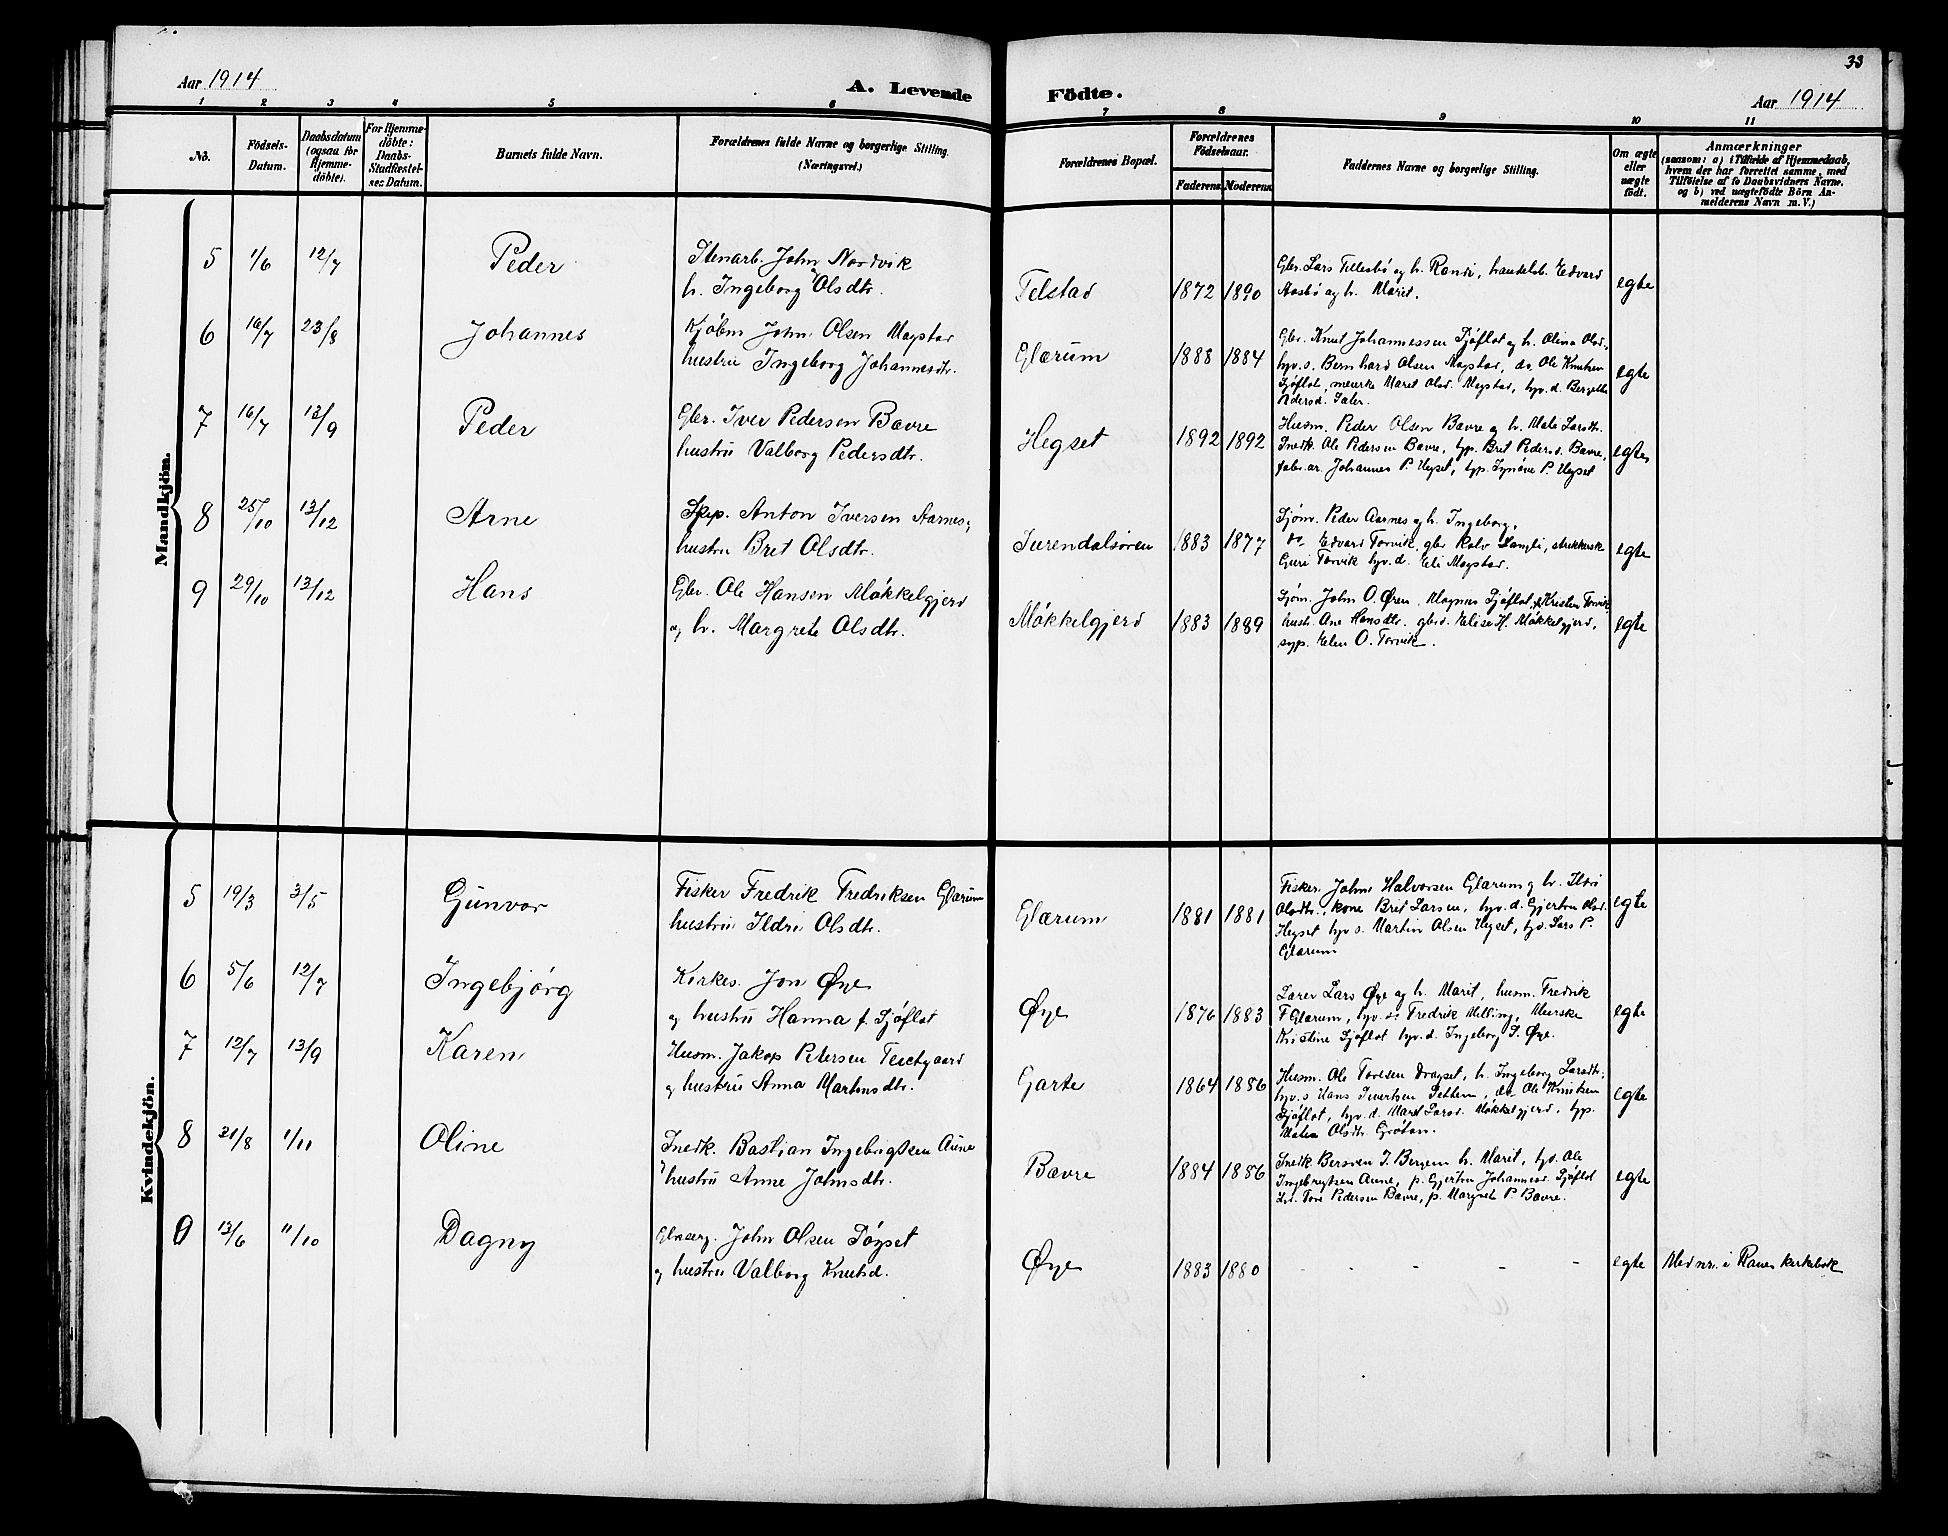 33
Aar 1914
A. Levende Födte.
Aar 1914
1 2 3 4 5 6 7 8 9 10 11
No.
Födsels-Datum.
Daabsdatum (ogsaa for Hjemme-döbte).
For Hjemme-döbte: Daabs-Stadfæstel-ses Datum.
Barnets fulde Navn.
Forældrenes fulde Navne og borgerlige Stilling.
(Næringsvei.)
Forældrenes Bopæl.
Forældrenes Födselsaar.
Faderens. Moderens.
Faddernes Navne og borgerlige Stilling.
Om ægte eller uægte födt.
Anmærkninger
(saasom: a) i Tilfælde af Hjemmedaab,
hvem der har forrettet samme, med
Tilföielse af to Daabsvidners Navne,
og b) ved uægtefödte Börn An-
melderens Navn m. V.)
Mandkjön.
5 1/6 12/7 Peder
Stenarb. John Nordvik
h. Ingeborg Olsdtr.
Telstad 1872 1890
Gbr. Lars Tellesbø og h. Randi, handelsb. Edvard
Aasbø og h. Maret.
egte
6 16/7 23/8 Johannes
Kjøbm John Olsen Mogstad
hustru Ingeborg Johannesdtr.
Glærum 1888 1884
Gbr. Knut Johannessen Sjøflot og h. Olina Olsd.,
hyv. s. Bernhard Olsen Mogstad, do. Ole Knutsen
Sjøflot, meierske Maret Olsd. Mogstad, hyv. d.
egte
7 16/7 13/9 Peder
Gbr. Iver Pedersen Bævre
hustru Valborg Pedersdtr.
Hegset 1892 1892
Husm. Peder Olsen Bævre og h. Mali Larsdtr.
Snedk. Ole Pedersen Bævre, typ. Bret Pedersd. Bævre,
fabr. ar. Johannes P. Hegset, typ. Synøve P. Hegset
egte
8 25/10 13/12 Arne
Skip. Anton Iversen Aarnes,
hustru Bret Olsdtr.
Surendalsøren 1883 1877
Sjøm. Peder Aarnes og h. Ingeborg,
do Edvard Torvik, gbr Rolv Langli, strikkerske
Guri Torvik hyv. d. Eli Mogstad.
egte
9 29/10 13/12 Hans
Gbr. Ole Hansen Møkkelgjerd
og h. Margrete Olsdtr.
Møkkelgjerd 1883 1889
Sjøm. John O. Øren, Magnus Sjøflot, Kristen Torvik
hust. Ane Hansdtr. gbrd. Elise H. Møkkelgjerd,
syp. Elen O. Torvik.
egte
Kvindekjön.
5 19/3 3/5 Gunvor
Fisker Fredrik Fredriksen Glærum
hustru Ildri Olsdtr.
Glærum 1881 1881
Fisker John Halvorsen Glærum og h. Ildri
Olsdtr., kone Bret Larsen, hyv. d. Gjertru Olsd.
Hegset hyv s. Martin Olsen Hegset, hys. Lars P.
Glærum
egte
6 5/6 12/7 Ingebjørg
Kirkes. Jon Øye
og hustru Hanna f. Sjøflot
Øye 1876 1883
Lærer Lars Øye og h. Marit, husm. Fredrik
F Glærum, hyv. s. Fredrik Melling, Meierske
Kristine Sjøflot hyv. d. Ingeborg S. Øye.
egte
7 12/7 13/9 Karen
Husm. Jakop Petersen Teistgaard
og hustru Anna Martinsdtr.
Garte 1864 1886
Husm. Ole Torlsen Dragset, h. Ingeborg Larsdtr.
hyv. s Hans Sivertsen Settem, do Ole Knutsen
Sjøflot, hyv. d. Maret Larsd. Møkkelgjerd, typ.
Malen Olsdtr. Grøtan.
egte
8 21/8 1/11 Oline
Snedk. Bastian Ingebrigtsen Aune
og hustru Anne Johnsdtr.
Bævre 1884 1886
Snedk Bersven J. Bergem h. Marit, hys. Ole
Ingebregtsen Aune, p. Gjertru Johannesd. Sjøflot
Tore Pedersen Bævre, p. Margrete P. Bævre.
egte
9 13/6 11/10 Dagny
John Olsen Søyset
og hustru Valborg Knutsd.
Øye 1883 1880
- - - - -
egte
Med nr. i Ranes kirkebok